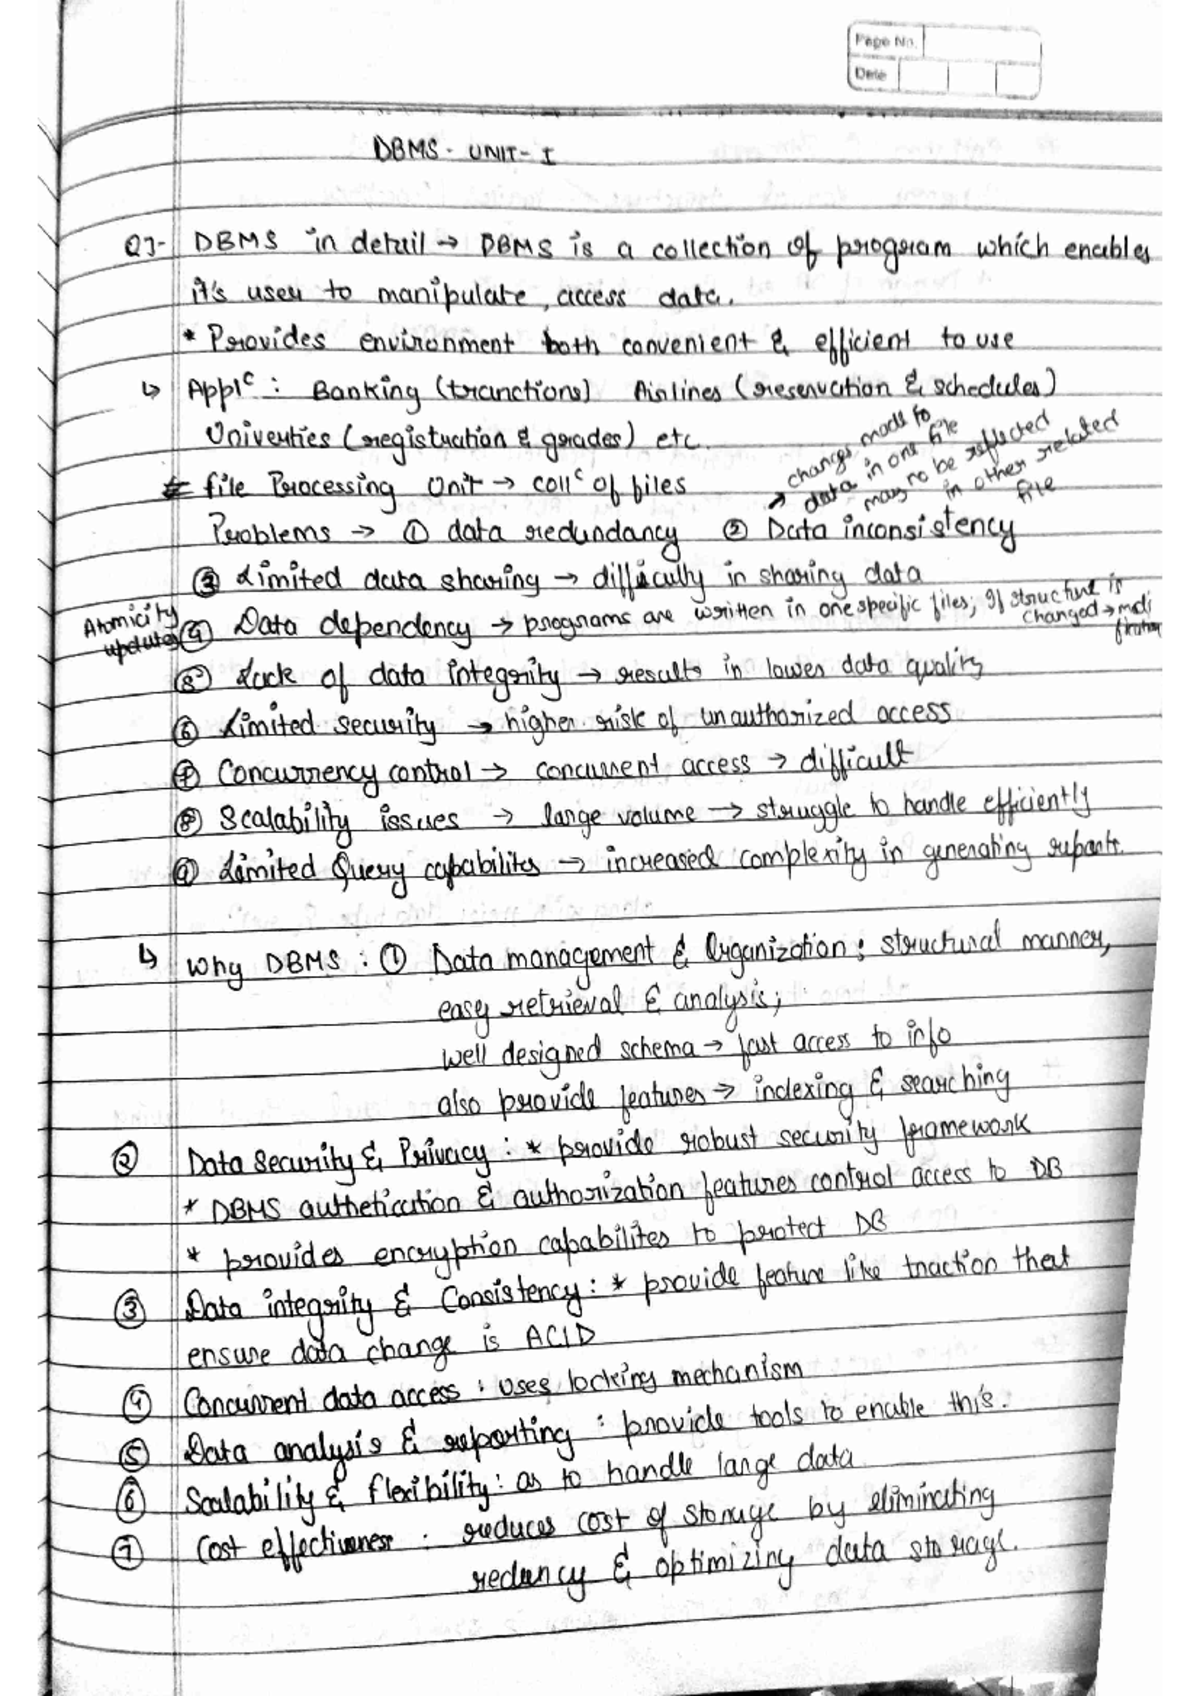 Page No.
Date
DBMS - UNIT - I
Q1- DBMS in detail → DBMS is a collection of program which enables
it's user to manipulate, access data.
* Provides environment both convenient & efficient to use
↳ Applᶜ : Banking (tranctions) Airlines (reservation & schedules)
Univerties (registration & grades) etc.
→ changes made to
data in one file
may no be reflected
in other related
file
file Processing Unit → collᶜ of files
Problems → ① data redundancy ② Data inconsistency
③ Limited data sharing → difficulty in sharing data
Atomicity
updates
④ Data dependency → programs are written in one specific files, if structure is
changed → modi
fication
⑤ Lack of data integrity → results in lower data quality
⑥ Limited security → higher risk of unauthorized access
⑦ Concurrency control → concurrent access → difficult
⑧ Scalability issues → large volume → struggle to handle efficiently
⑨ Limited Query capabilites → increased complexity in generating reports.
↳ Why DBMS : ① Data management & Organization : structural manner,
easy retrieval & analysis;
well designed schema → fast access to info
also provide features → indexing & searching
② Data Security & Privacy : * provide robust security framework
* DBMS authetication & authorization features control access to DB
* provides encryption capabilites to protect DB
③ Data integrity & Consistency : * provide feature like traction that
ensure data change is ACID
④ Concurrent data access : uses locking mechanism
⑤ Data analysis & reporting : provide tools to enable this.
⑥ Scalability & flexibility : as to handle large data
⑦ Cost effectiveness : reduces cost of storage by eliminating
redency & optimizing data storage.